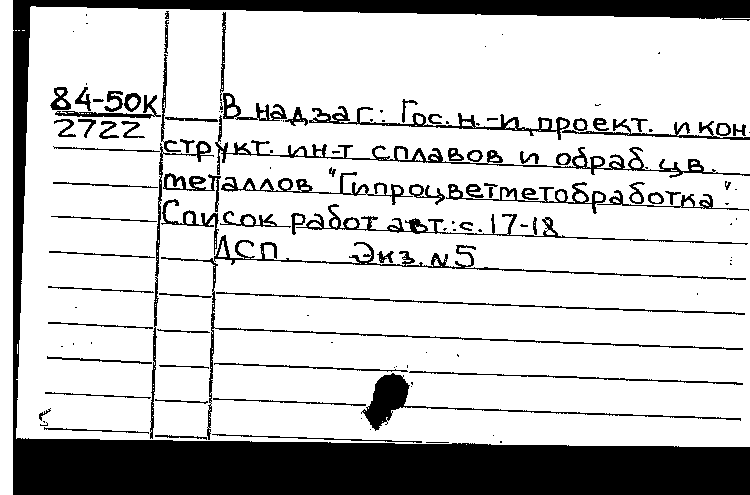 84-50к
2722
В надзаг.: Гос. н.-и, проект. и кон
структ. ин-т сплавов и обраб. цв.
металлов "Гипроцветметобработка".
Список работ авт.: с. 17-18.
ДСП. Экз. N 5
5